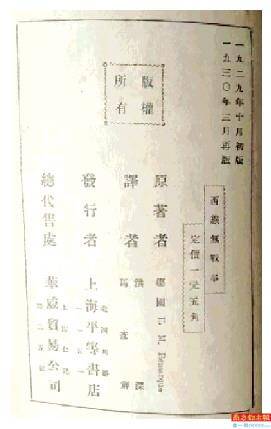 一九二九年十月初版
一九三〇年三月再版
西線無戰事
定價一元五角
版權
所有
原著者 德國 E. M. Remarque
譯者 洪深
馬彥祥
發行者 上海平等書店
總代售處 華威貿易公司